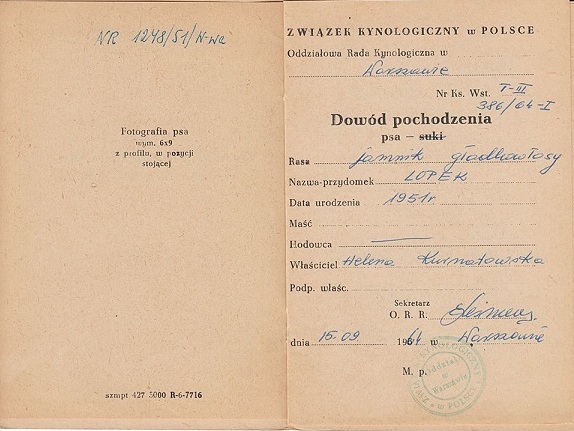 NR 1248/51/W-wa
Fotografia psa
wym. 6x9
z profilu, w pozycji
stojącej
szmpt 427 5000 R-6-7716
ZWIĄZEK KYNOLOGICZNY w POLSCE
Oddziałowa Rada Kynologiczna w
Warszawie
Nr Ks. Wst. T-III
386/64-I
Dowód pochodzenia
psa — suki
Rasa jamnik gładkowłosy
Nazwa-przydomek LOPEK
Data urodzenia 1951r
Maść
Hodowca —
Właściciel Helena Kurnatowska
Podp. właśc.
Sekretarz
O. R. R.
dnia 15.09 1961 w Warszawie
M. p.
ZWIĄZEK KYNOLOGICZNY w POLSCE
Oddział
w
Warszawie